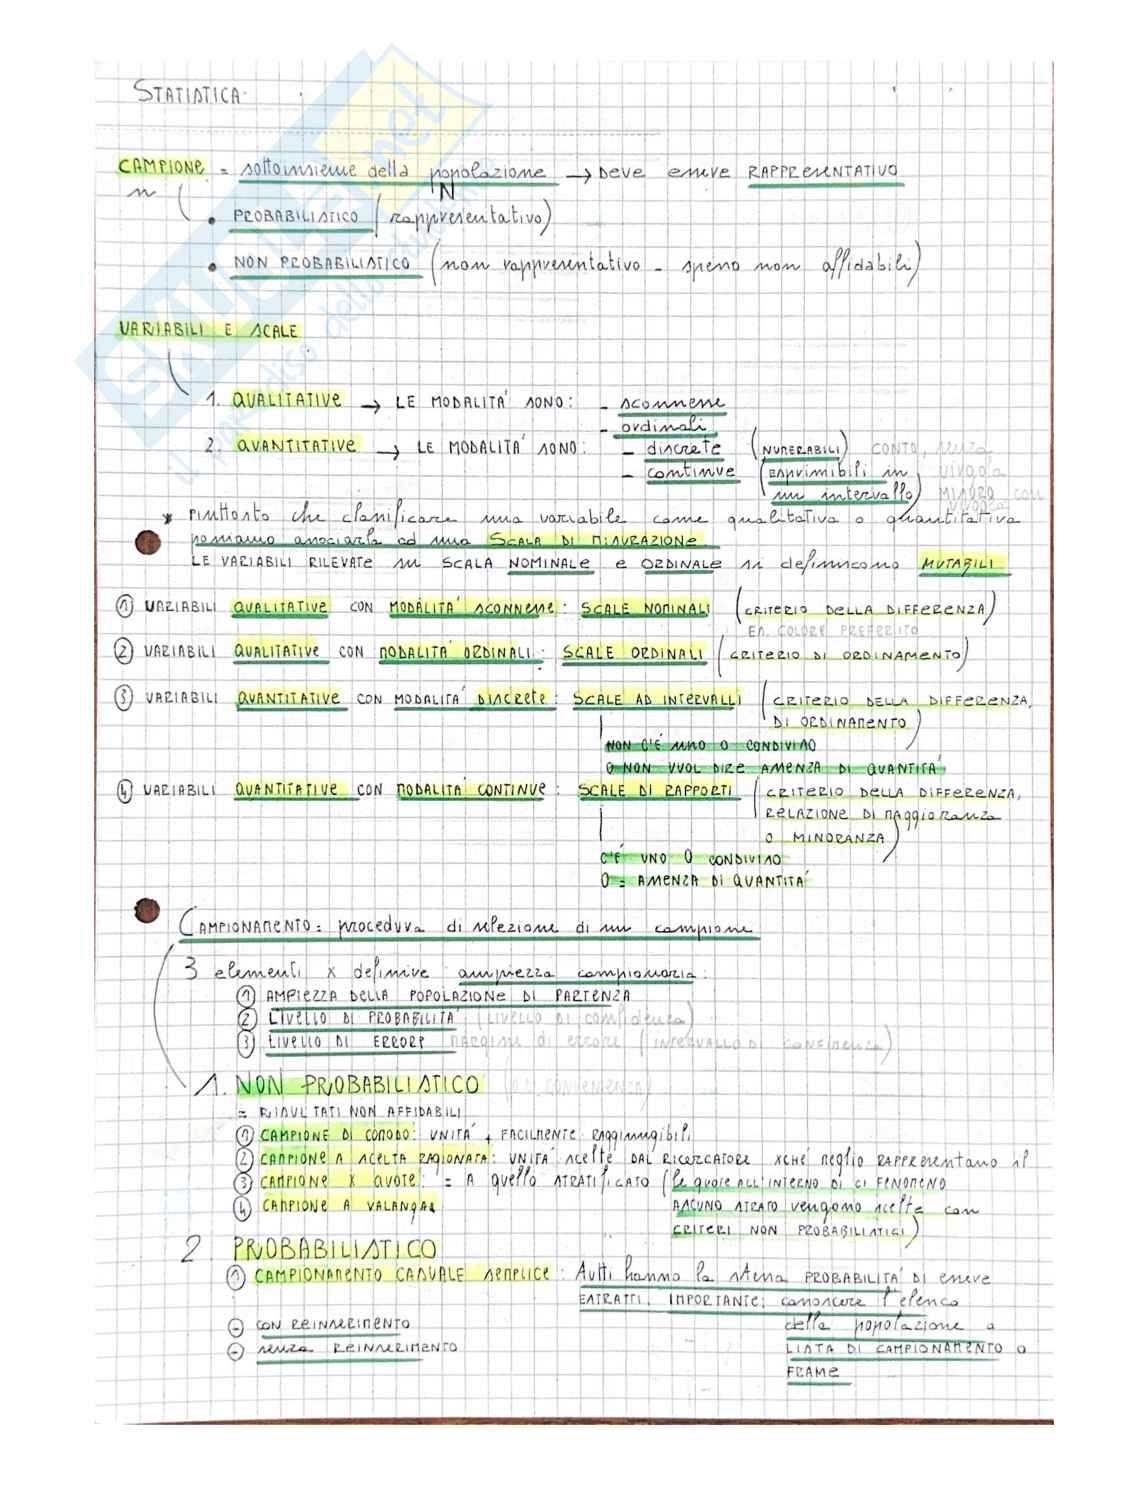 STATISTICA
CAMPIONE = sottoinsieme della popolazione → DEVE essere RAPPRESENTATIVO
n N
• PROBABILISTICO (rappresentativo)
• NON PROBABILISTICO (non rappresentativo - spesso non affidabili)
VARIABILI E SCALE
1. QUALITATIVE → LE MODALITÀ SONO: - sconnesse
- ordinali
2. QUANTITATIVE → LE MODALITÀ SONO: - discrete (NUMERABILI) CONTO, senza virgola
- continue (ESPRIMIBILI in un intervallo) MISURO con virgola
* PIUTTOSTO che classificare una variabile come qualitativa o quantitativa
possiamo associarla ad una SCALA DI MISURAZIONE.
LE VARIABILI RILEVATE su SCALA NOMINALE e ORDINALE si definiscono MUTABILI
① VARIABILI QUALITATIVE CON MODALITÀ SCONNESSE: SCALE NOMINALI (CRITERIO DELLA DIFFERENZA)
ES. COLORE PREFERITO
② VARIABILI QUALITATIVE CON MODALITÀ ORDINALI: SCALE ORDINALI (CRITERIO DI ORDINAMENTO)
③ VARIABILI QUANTITATIVE CON MODALITÀ DISCRETE: SCALE AD INTERVALLI (CRITERIO DELLA DIFFERENZA,
DI ORDINAMENTO)
NON C'È UNO 0 CONDIVISO
0 NON VUOL DIRE ASSENZA DI QUANTITÀ
④ VARIABILI QUANTITATIVE CON MODALITÀ CONTINUE: SCALE DI RAPPORTI (CRITERIO DELLA DIFFERENZA,
RELAZIONE DI MAGGIORANZA
O MINORANZA)
C'È UNO 0 CONDIVISO
0 = ASSENZA DI QUANTITÀ
CAMPIONAMENTO = procedura di selezione di un campione
3 elementi x definire ampiezza campionaria:
① AMPIEZZA DELLA POPOLAZIONE DI PARTENZA
② LIVELLO DI PROBABILITÀ (LIVELLO DI confidenza)
③ LIVELLO DI ERRORE MARGINE di errore (INTERVALLO DI CONFIDENZA)
1. NON PROBABILISTICO
= RISULTATI NON AFFIDABILI
① CAMPIONE DI COMODO: UNITÀ + FACILMENTE RAGGIUNGIBILI
② CAMPIONE A SCELTA RAGIONATA: UNITÀ SCELTE DAL RICERCATORE XCHÉ MEGLIO RAPPRESENTANO il FENOMENO
③ CAMPIONE X QUOTE: = A QUELLO STRATIFICATO (le quote ALL'INTERNO DI CIASCUNO STRATO vengono scelte con
CRITERI NON PROBABILISTICI)
④ CAMPIONE A VALANGA
2. PROBABILISTICO
① CAMPIONAMENTO CASUALE SEMPLICE: tutti hanno la stessa PROBABILITÀ DI essere
ESTRATTI. IMPORTANTE: conoscere l'elenco
della popolazione o
LISTA DI CAMPIONAMENTO o
FRAME
- CON REINSERIMENTO
- senza REINSERIMENTO
SKUOLA.net
il paradiso dello studente